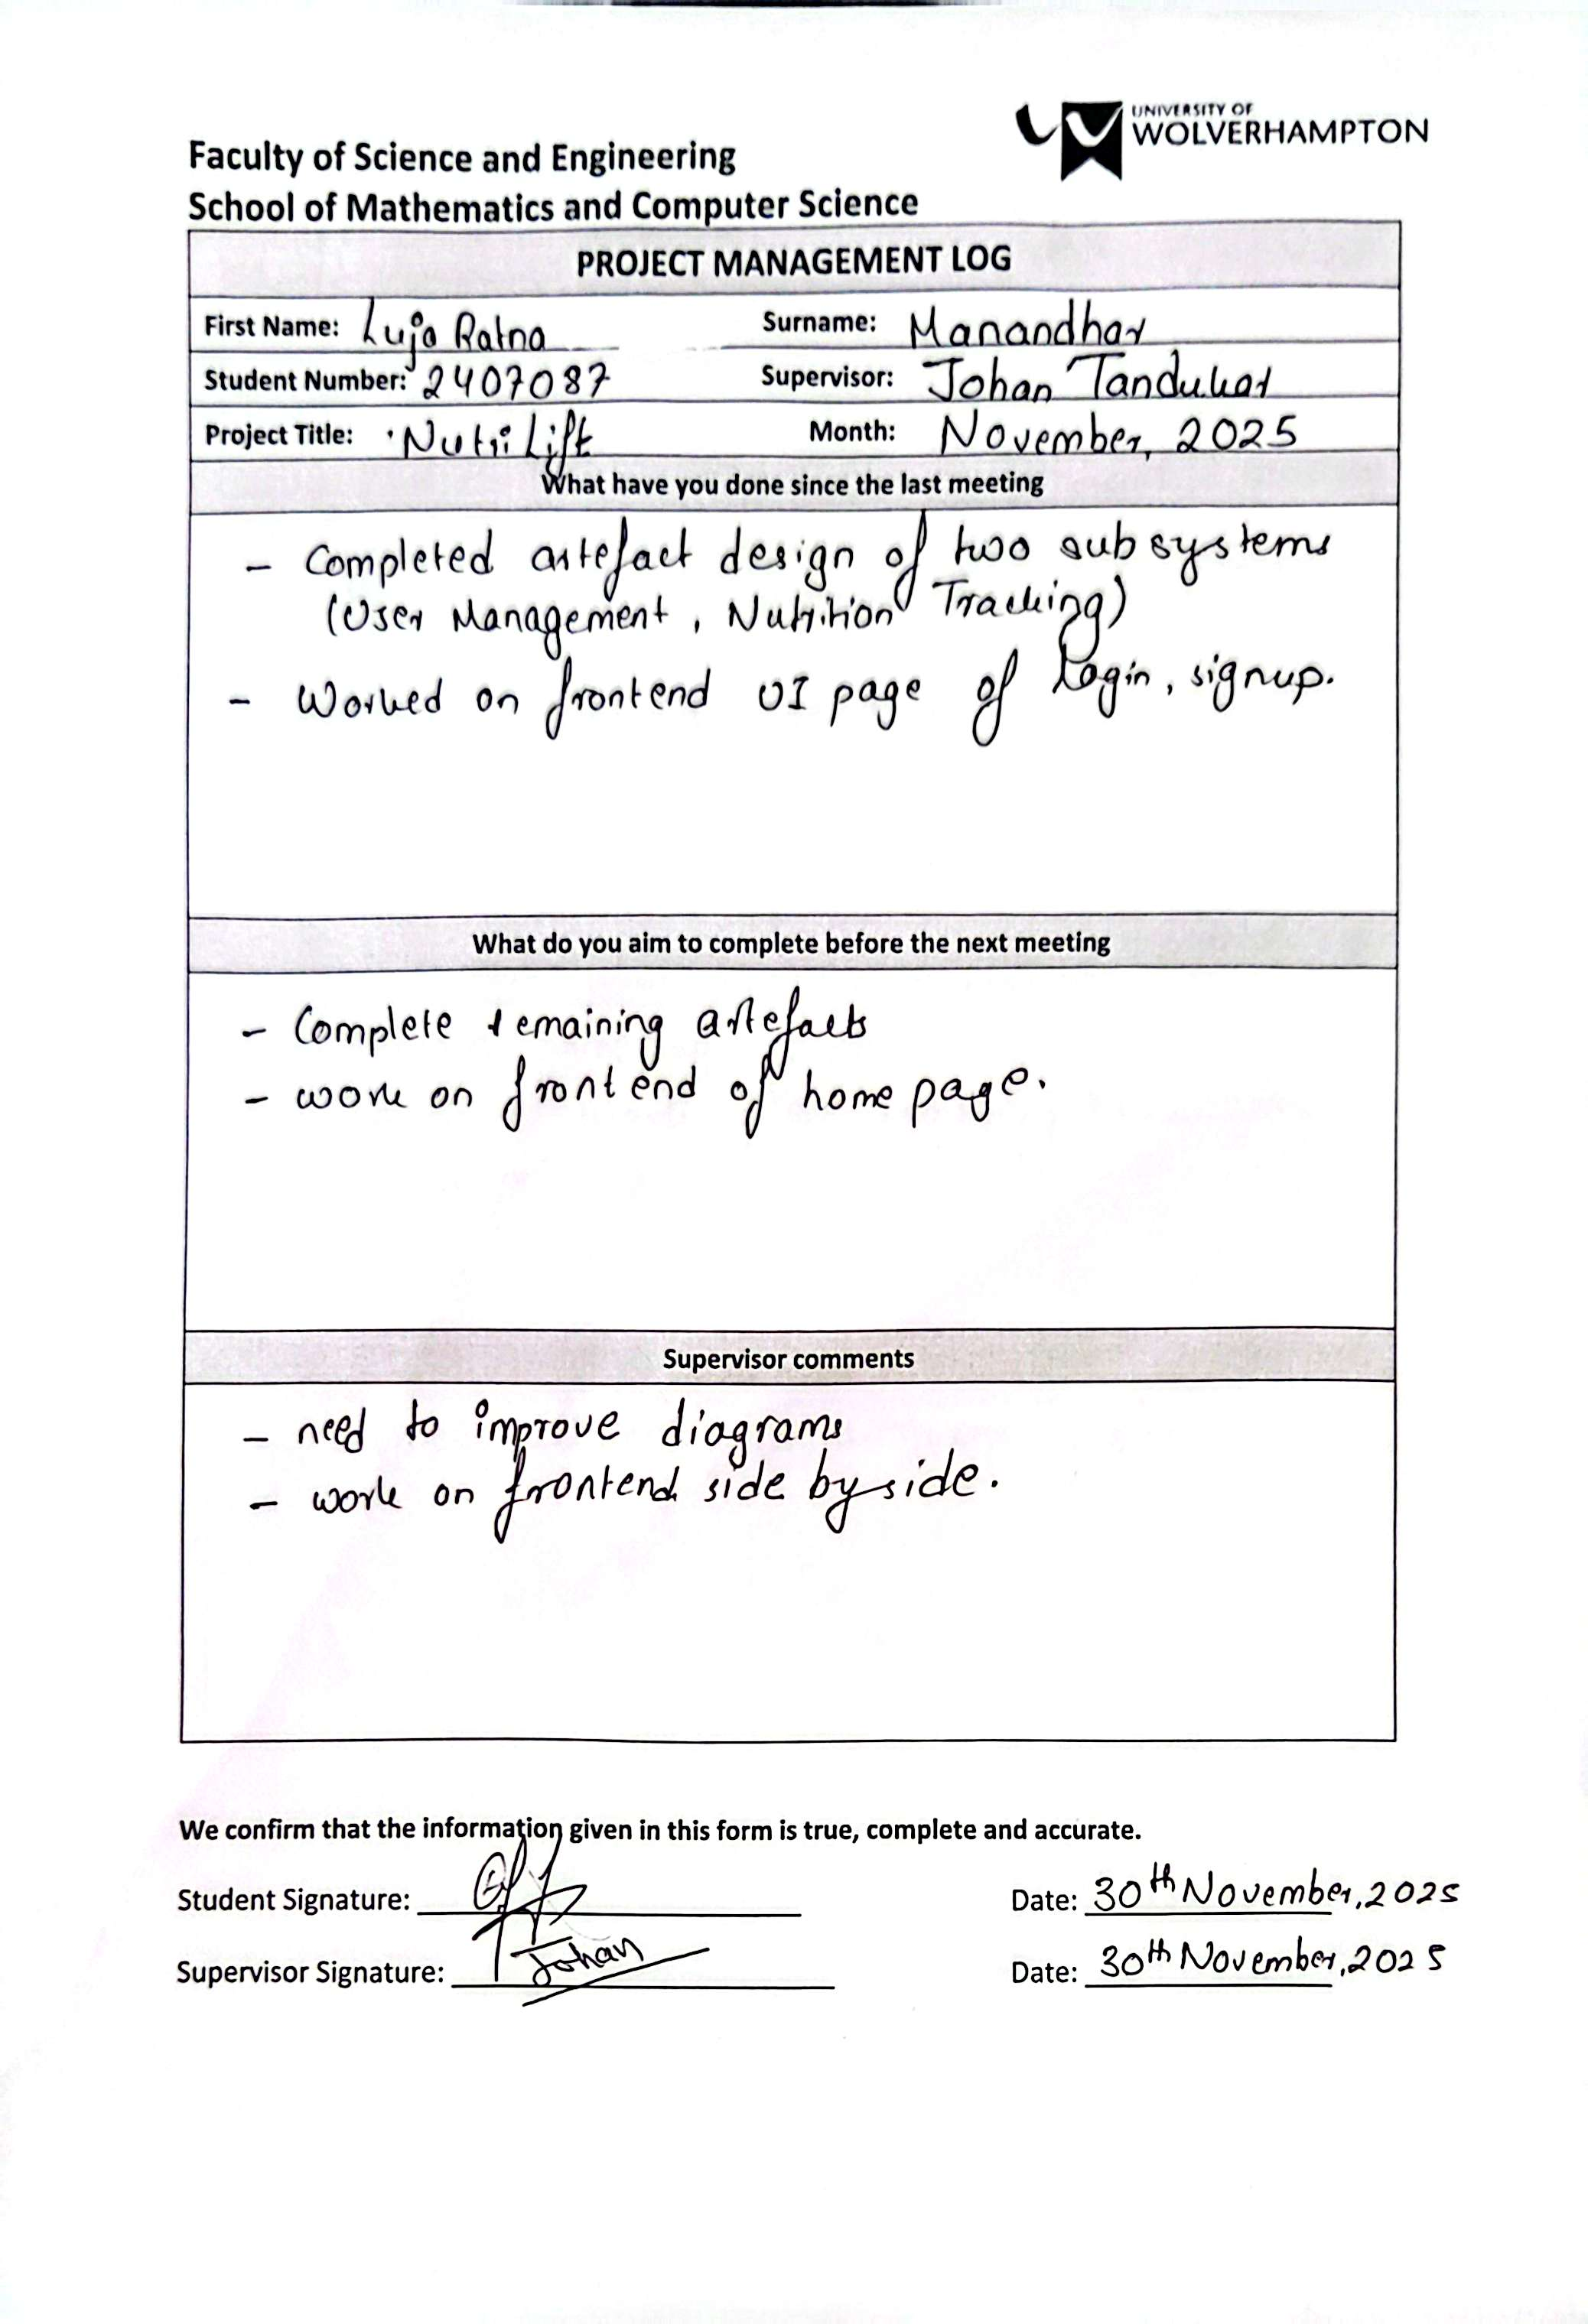 UNIVERSITY OF
WOLVERHAMPTON
Faculty of Science and Engineering
School of Mathematics and Computer Science
PROJECT MANAGEMENT LOG
First Name: Luja Ratna Surname: Manandhar
Student Number: 2407087 Supervisor: Johan Tandukar
Project Title: NutriLift Month: November, 2025
What have you done since the last meeting
- Completed artefact design of two subsystems
(User Management, Nutrition Tracking)
- Worked on frontend UI page of Login, signup.
What do you aim to complete before the next meeting
- Complete remaining artefacts
- work on frontend of home page.
Supervisor comments
- need to improve diagrams
- work on frontend side by side.
We confirm that the information given in this form is true, complete and accurate.
Student Signature: Date: 30th November, 2025
Supervisor Signature: Johan Date: 30th November, 2025